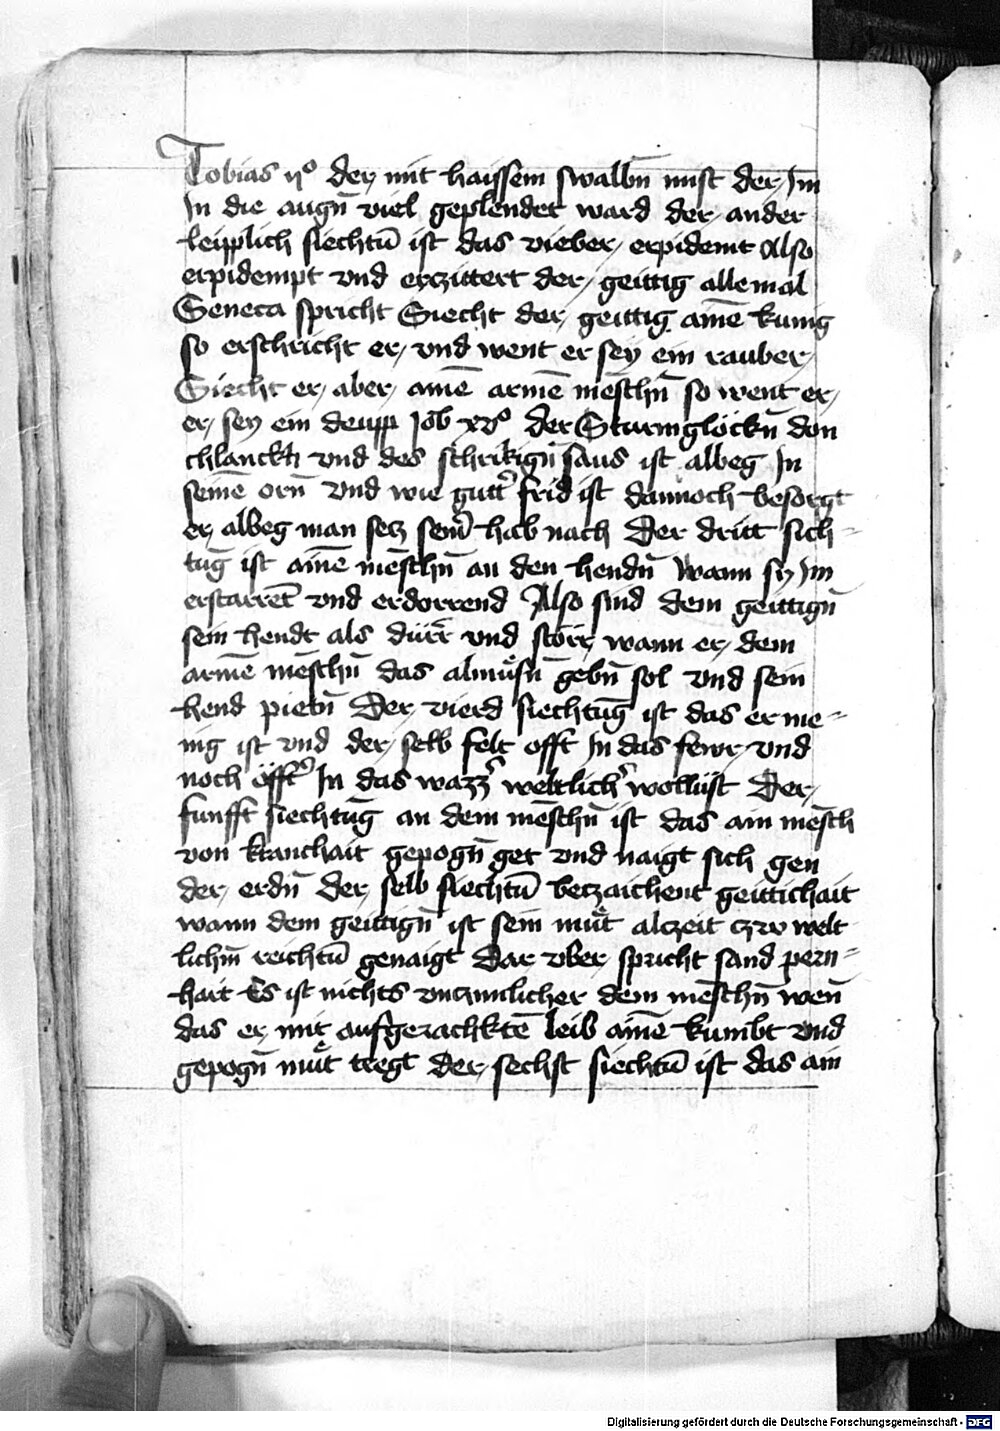 Tobias ijº der mit haissem swalbn̄ mist der Im
In die augn̄ viel geplendet ward der ander
leipplich siechtū ist das vieber erpidemt Also
erpidempt vnd erczittert der geittig allemal
Seneca spricht Siecht der geittig ainē kunig
so erschricht er vnd went er sey ein rauber
Siecht er aber ainē armē mēschn̄ so went er
er sey ein deupp Job xvº der Sturmglöckn̄ don
chlanckh vnd des schrikign̄ saus ist albeg In
seinē orn̄ vnd wie gutt' frid ist dannoch besorgt
er albeg man secz sein' hab nach Der dritt sich-
tūg ist ainē mēschn̄ an den hendn̄ Wann sy Im
erstarrēt vnd erdorrend Also sind dem geittign̄
sein hendt als dürr vnd störr wann er dem
armē mēschn̄ das almůsn̄ gebn̄ sol vnd sein
hend pietn̄ Der vierd siechtūg ist das er me-
nig ist vnd der selb felt offt In das fewr vnd
noch öfft' In das wazz' weltlich' wollüst Der
funfft siechtūg an dem mēschn̄ ist das ain mēsch
von kranchait gepogn̄ get vnd naigt sich gen
der erdn̄ Der selb siechtū beczaichent geittichait
wann dem geittign̄ ist sein můt alczeit czw welt
lichm̄ reichtū genaigt Dar vber spricht sand pern-
hart Es ist nichts vnczimlicher dem mēschn̄ wen̄
das er mit aufgerachktē leib ainē kumbt vnd
gepogn̄ můt tregt Der sechst siechtū ist das ain
Digitalisierung gefördert durch die Deutsche Forschungsgemeinschaft - DFG